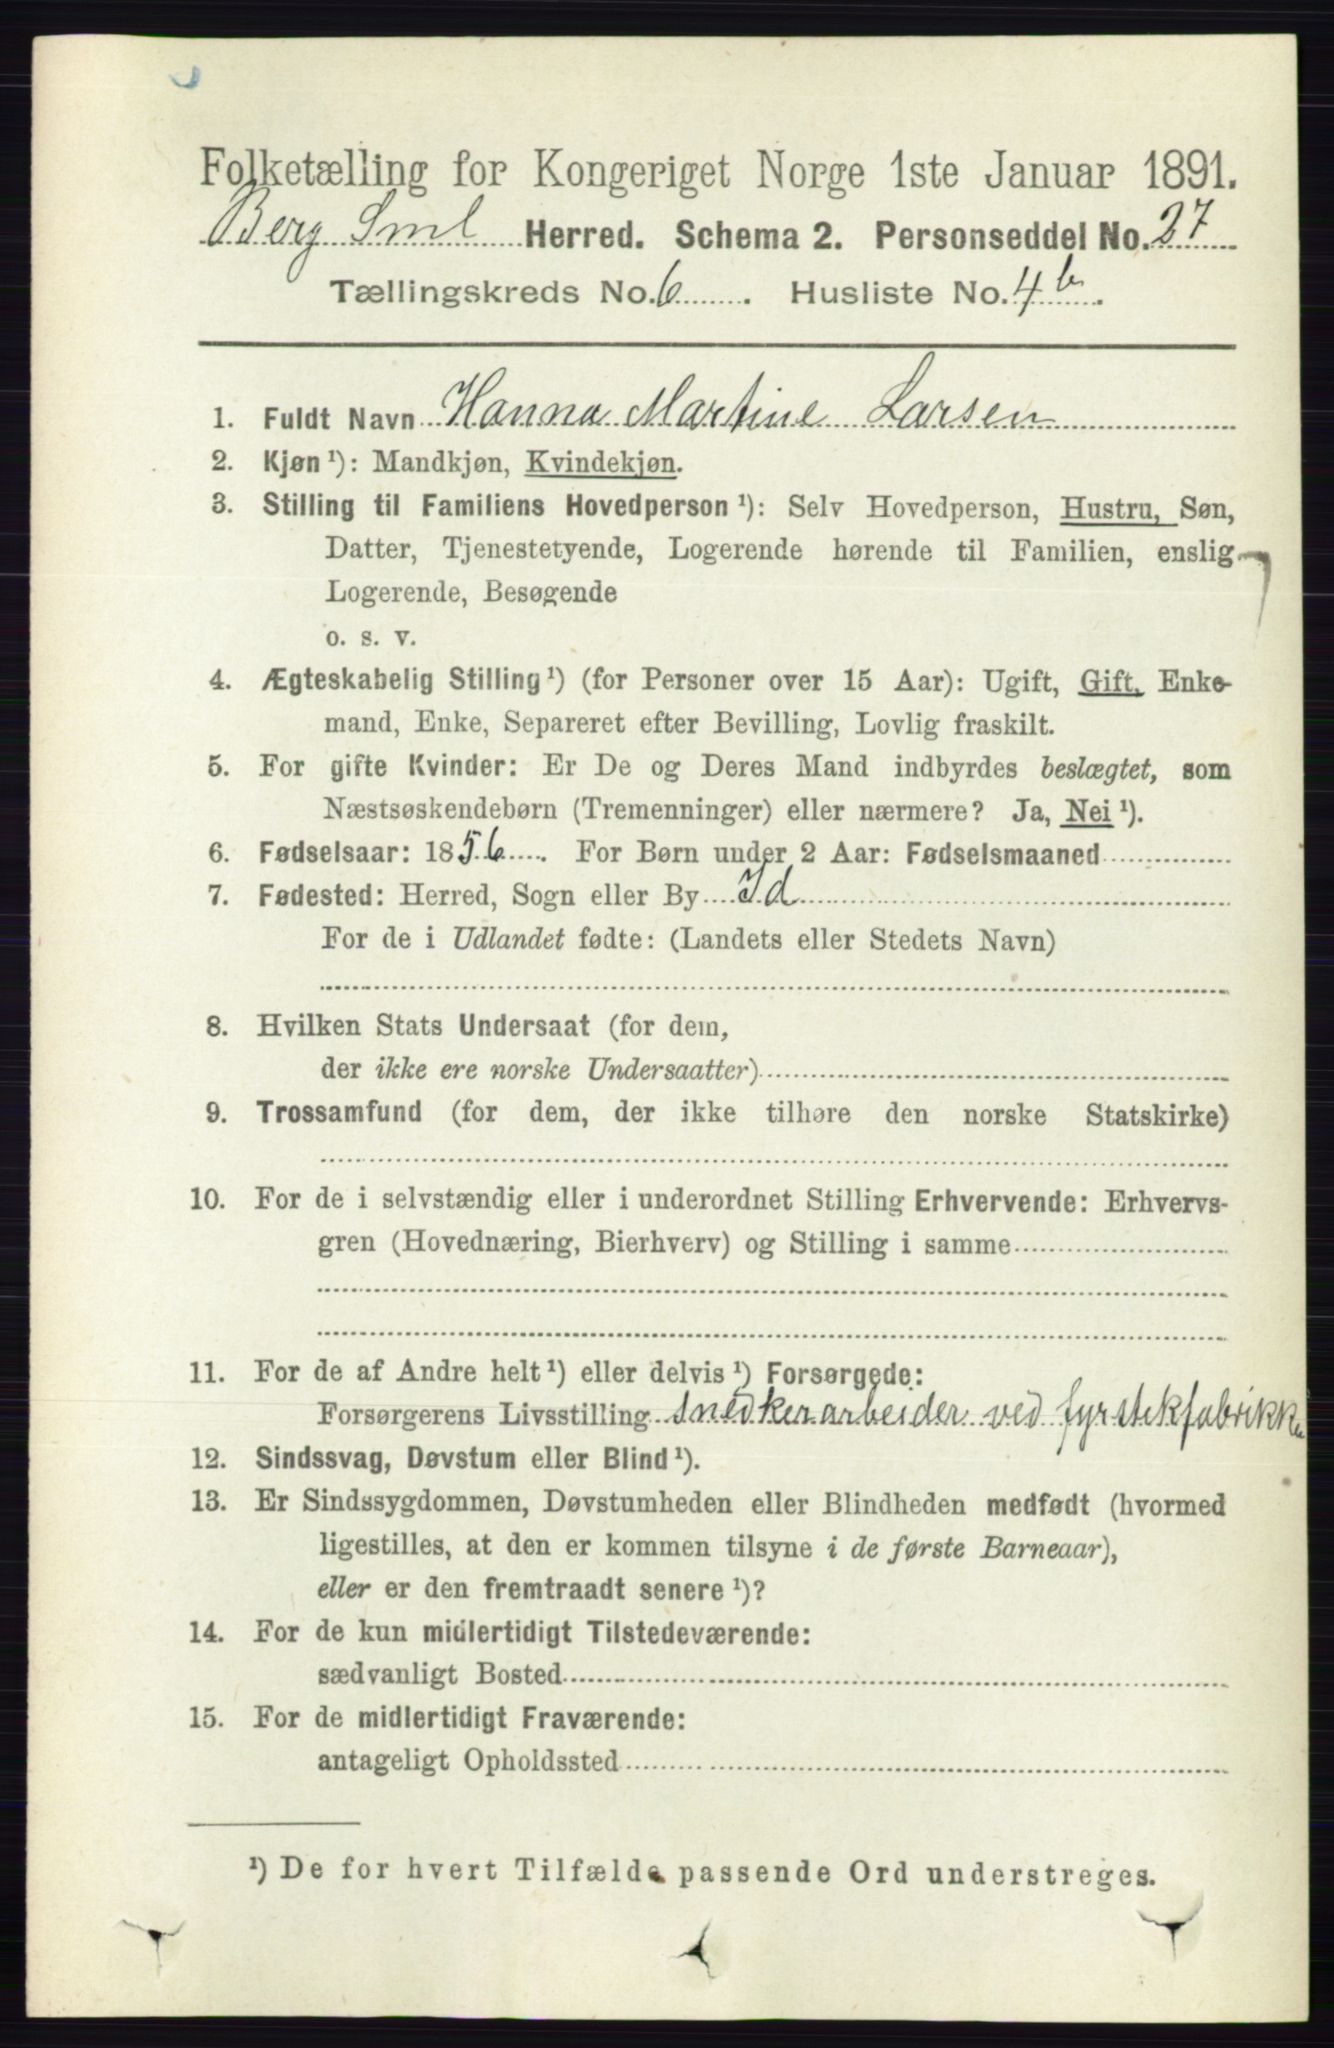 Folketælling for Kongeriget Norge 1ste Januar 1891.
Berg Sml Herred. Schema 2. Personseddel No. 27
Tællingskreds No. 6 . Husliste No. 4b .
1. Fuldt Navn Hanna Martine Larsen
2. Kjøn ¹): Mandkjøn, Kvindekjøn.
3. Stilling til Familiens Hovedperson ¹): Selv Hovedperson, Hustru, Søn,
Datter, Tjenestetyende, Logerende hørende til Familien, enslig
Logerende, Besøgende
o. s. v.
4. Ægteskabelig Stilling ¹) (for Personer over 15 Aar): Ugift, Gift, Enke-
mand, Enke, Separeret efter Bevilling, Lovlig fraskilt.
5. For gifte Kvinder: Er De og Deres Mand indbyrdes beslægtet, som
Næstsøskendebørn (Tremenninger) eller nærmere? Ja, Nei ¹).
6. Fødselsaar: 1856 . For Børn under 2 Aar: Fødselsmaaned
7. Fødested: Herred, Sogn eller By Id
For de i Udlandet fødte: (Landets eller Stedets Navn)
8. Hvilken Stats Undersaat (for dem,
der ikke ere norske Undersaatter)
9. Trossamfund (for dem, der ikke tilhøre den norske Statskirke)
10. For de i selvstændig eller i underordnet Stilling Erhvervende: Erhvervs-
gren (Hovednæring, Bierhverv) og Stilling i samme
11. For de af Andre helt ¹) eller delvis ¹) Forsørgede:
Forsørgerens Livsstilling snedkerarbeider ved fyrstekfabrikken
12. Sindssvag, Døvstum eller Blind ¹).
13. Er Sindssygdommen, Døvstumheden eller Blindheden medfødt (hvormed
ligestilles, at den er kommen tilsyne i de første Barneaar),
eller er den fremtraadt senere ¹)?
14. For de kun midlertidigt Tilstedeværende:
sædvanligt Bosted
15. For de midlertidigt Fraværende:
antageligt Opholdssted
¹) De for hvert Tilfælde passende Ord understreges.